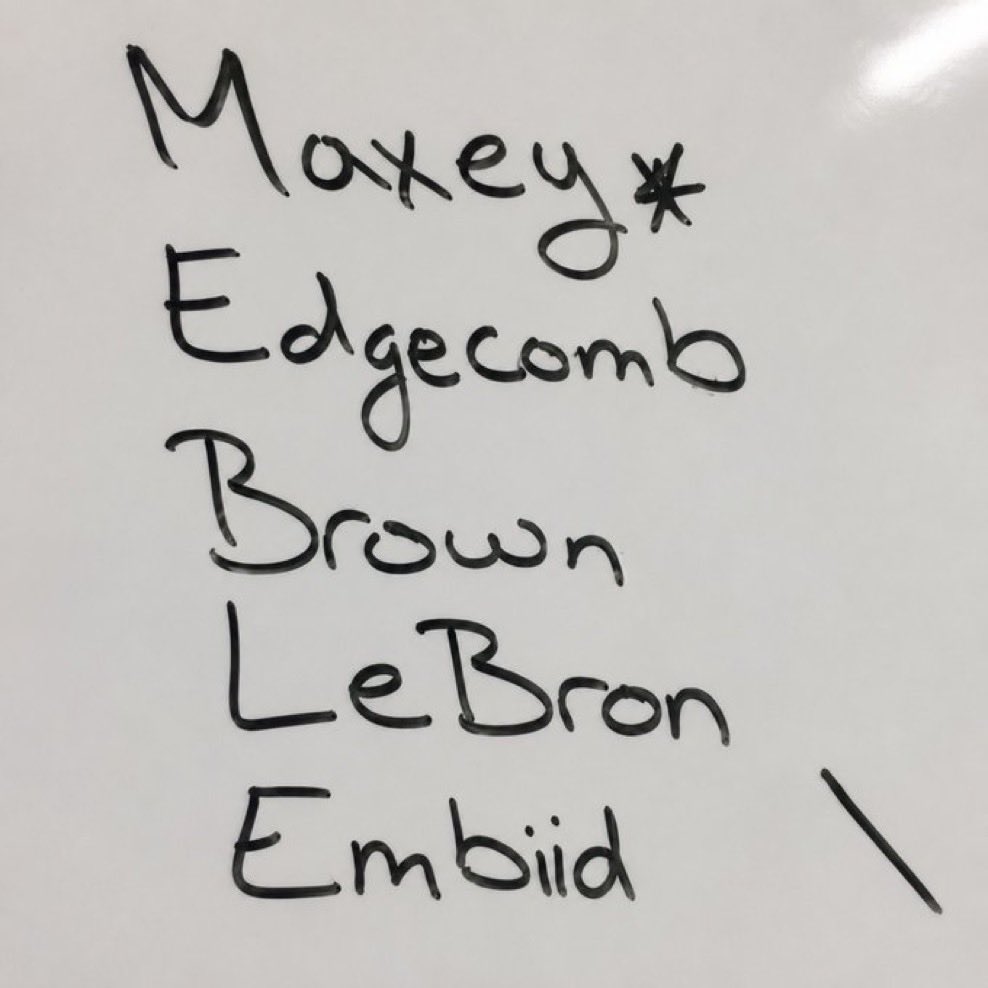 Maxey*
Edgecomb
Brown
LeBron
Embiid \